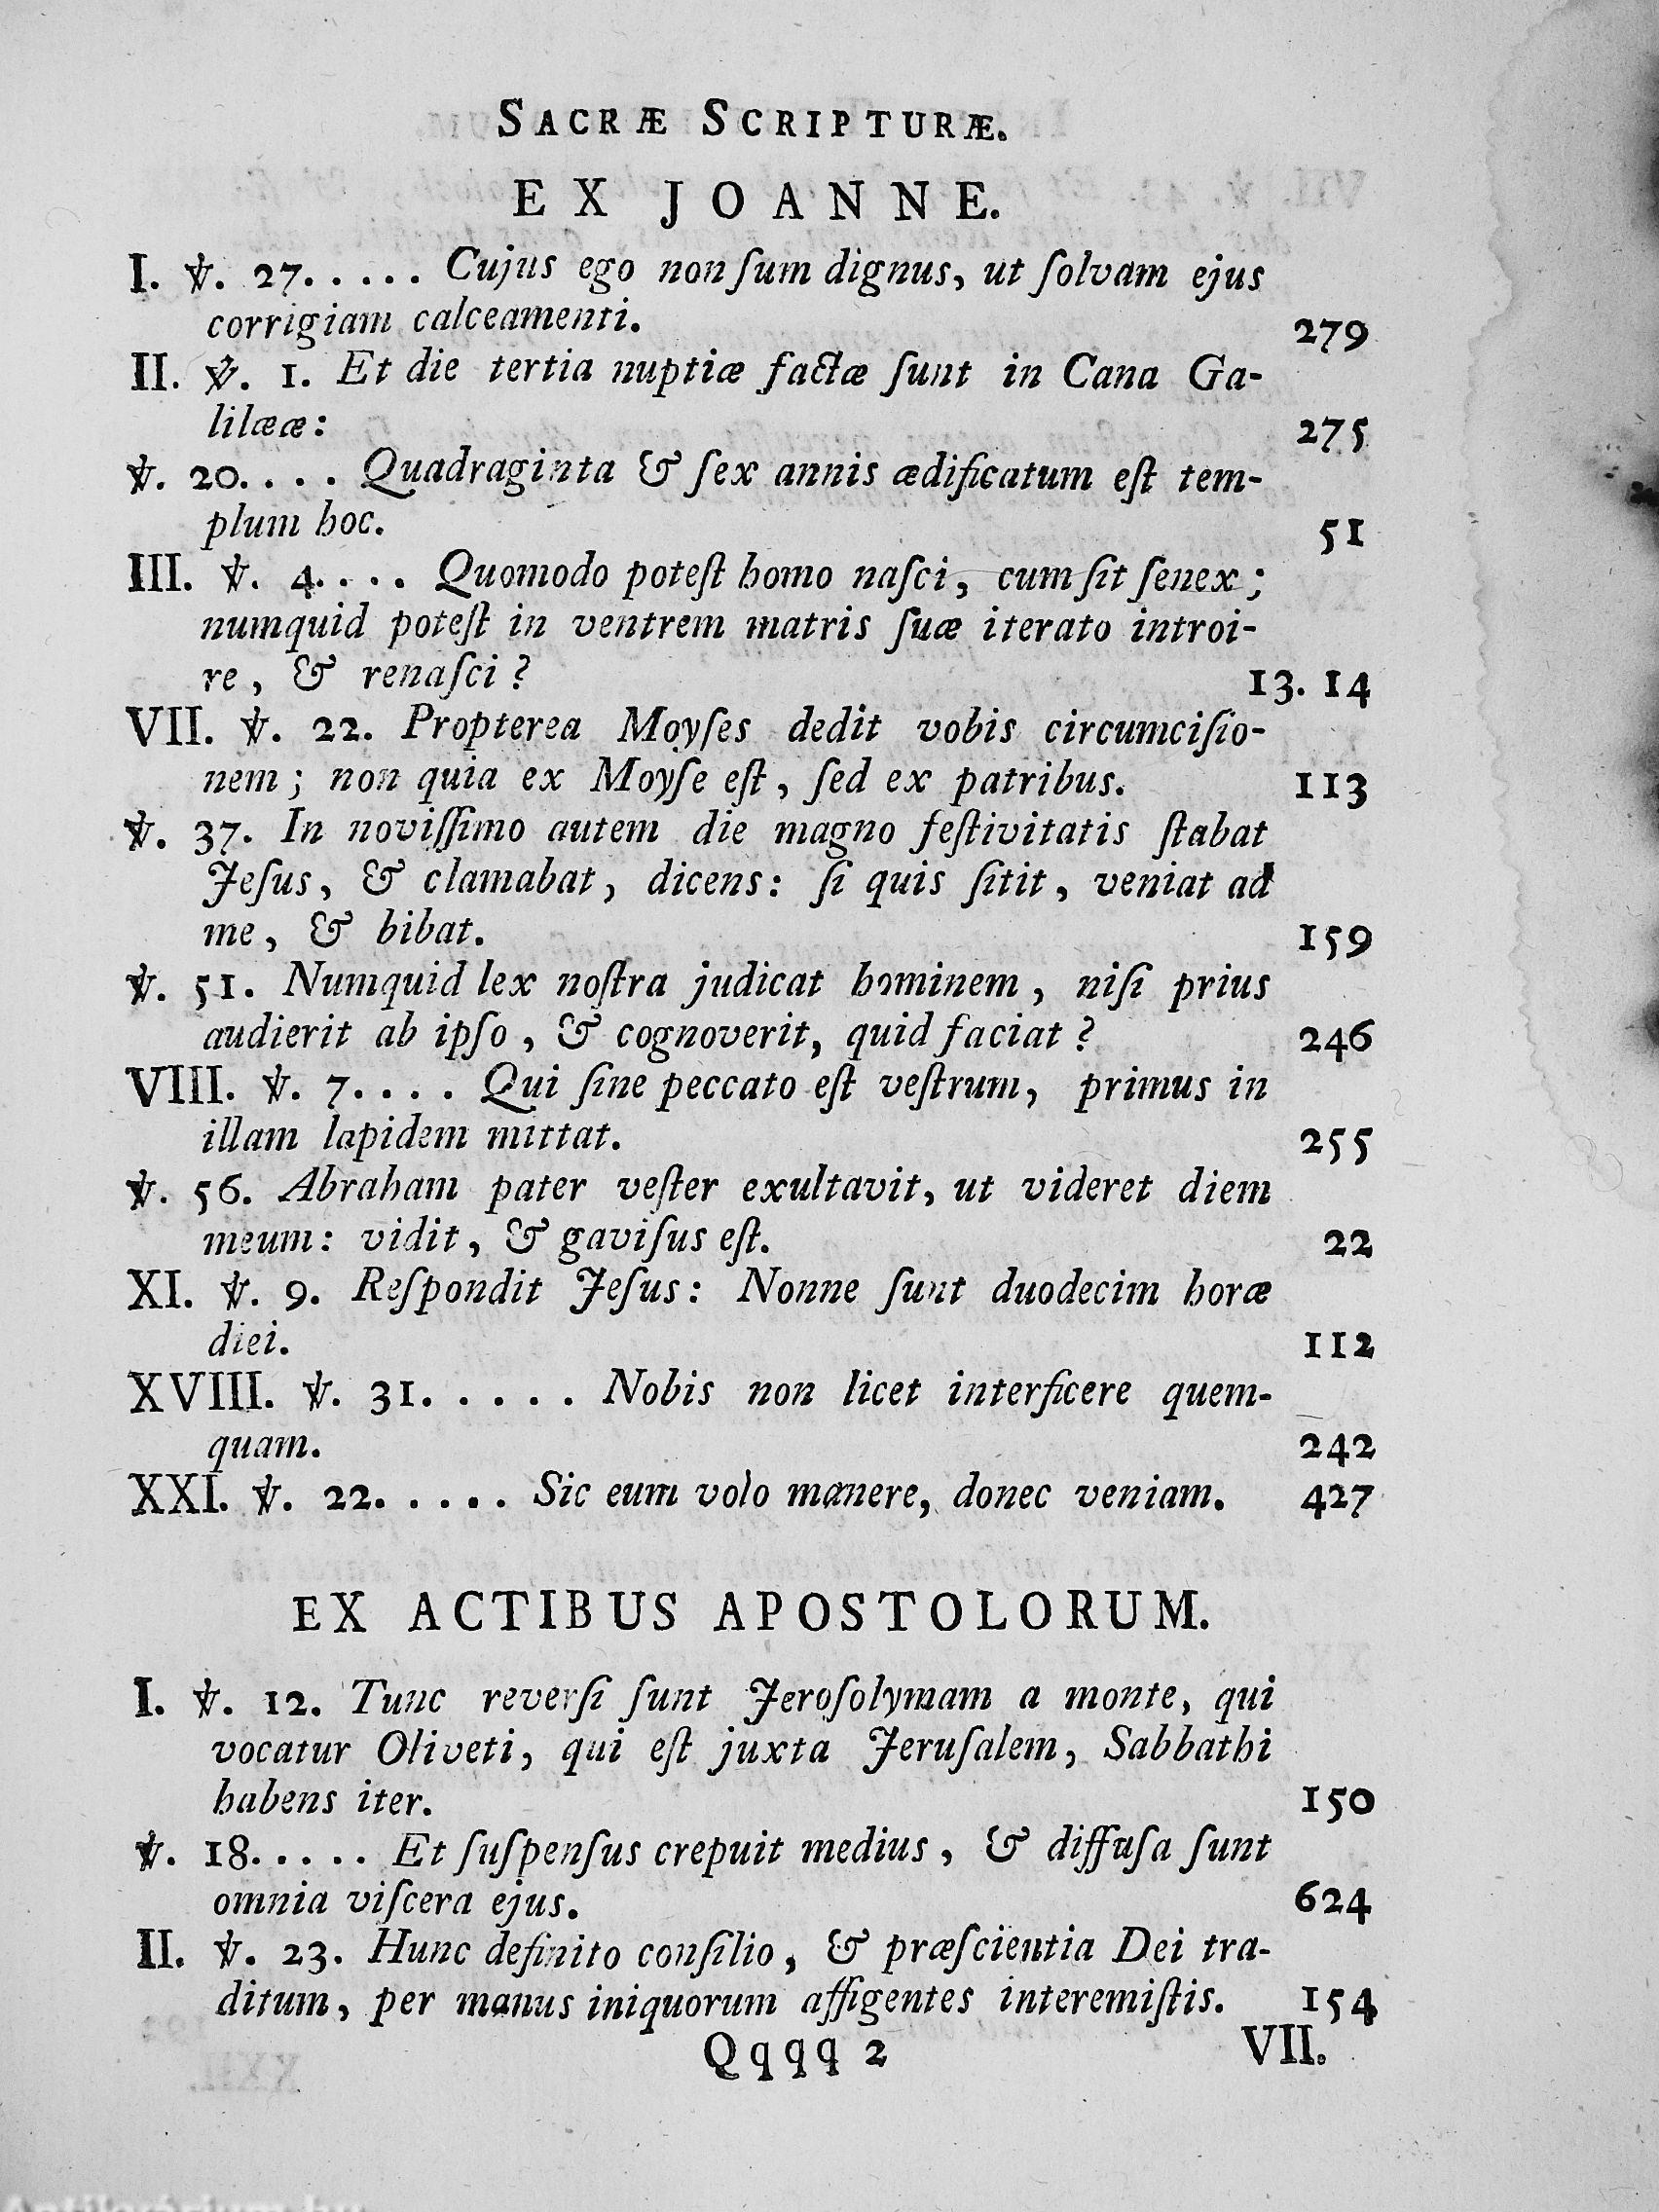 SACRÆ SCRIPTURÆ.
EX JOANNE.
I. ℣. 27. . . . . Cujus ego non ſum dignus, ut ſolvam ejus
corrigiam calceamenti. 279
II. ℣. 1. Et die tertia nuptiæ factæ ſunt in Cana Ga-
lilææ: 275
℣. 20. . . . Quadraginta & ſex annis ædificatum eſt tem-
plum hoc. 51
III. ℣. 4. . . . Quomodo poteſt homo naſci, cum ſit ſenex;
numquid poteſt in ventrem matris ſuæ iterato introi-
re, & renaſci? 13. 14
VII. ℣. 22. Propterea Moyſes dedit vobis circumciſio-
nem; non quia ex Moyſe eſt, ſed ex patribus. 113
℣. 37. In noviſſimo autem die magno feſtivitatis ſtabat
Jeſus, & clamabat, dicens: ſi quis ſitit, veniat ad
me, & bibat. 159
℣. 51. Numquid lex noſtra judicat hominem, niſi prius
audierit ab ipſo, & cognoverit, quid faciat? 246
VIII. ℣. 7. . . . Qui ſine peccato eſt veſtrum, primus in
illam lapidem mittat. 255
℣. 56. Abraham pater veſter exultavit, ut videret diem
meum: vidit, & gaviſus eſt. 22
XI. ℣. 9. Reſpondit Jeſus: Nonne ſunt duodecim horæ
diei. 112
XVIII. ℣. 31. . . . . Nobis non licet interficere quem-
quam. 242
XXI. ℣. 22. . . . . Sic eum volo manere, donec veniam. 427
EX ACTIBUS APOSTOLORUM.
I. ℣. 12. Tunc reverſi ſunt Jeroſolymam a monte, qui
vocatur Oliveti, qui eſt juxta Jeruſalem, Sabbathi
habens iter. 150
℣. 18. . . . . Et ſuſpenſus crepuit medius, & diffuſa ſunt
omnia viſcera ejus. 624
II. ℣. 23. Hunc definito conſilio, & præſcientia Dei tra-
ditum, per manus iniquorum affigentes interemiſtis. 154
Qqqq 2 VII.